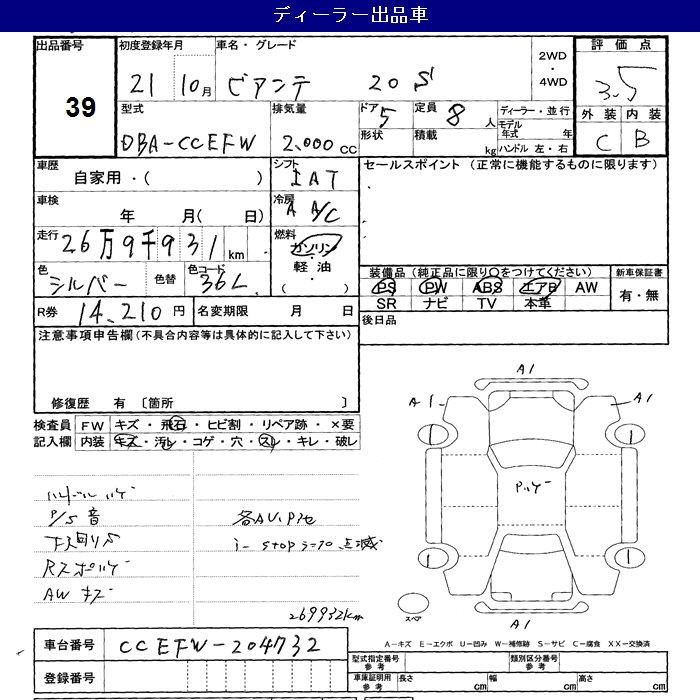 ディーラー出品車
出品番号 初度登録年月 車名・グレード 2WD・4WD 評価点
39 21 10月 ビアンテ 20S 3.5
型式 排気量 ドア 5 定員 8人 ディーラー・並行 外装 内装
DBA-CCEFW 2,000cc 形状 積載 kg モデル年式 年 C B
ハンドル 左・右
車歴 自家用・( ) シフト IAT セールスポイント (正常に機能するものに限ります)
車検 年 月( 日) 冷房 A A/C
走行 26万9千931km 燃料 ガソリン・軽油
( )
色 シルバー 色替 色コード 36L 装備品 (純正品に限り○をつけてください) 新車保証書
PS PW ABS エアB AW 有・無
SR ナビ TV 本革
R券 14,210円 名変期限 月 日 後日品
注意事項申告欄(不具合内容等は具体的に記入して下さい)
修復歴 有 〔箇所 〕
検査員 FW キズ・飛石・ヒビ割・リペア跡・×要
記入欄 内装 キズ・汚レ・コゲ・穴・スレ・キレ・破レ
ハンドルハゲ
P/S音 各AV.Pセ
下回りS i-stopランプ点滅
Rスポハゲ
AWキズ
269932km
A1
A1 A1
1 1
Pハゲ
1 1
スペア A1
車台番号 CCEFW-204732 A-キズ E-エクボ U-凹み W-補修跡 S-サビ C-腐食 XX-交換済
登録番号 型式指定番号 参考 類別区分番号 参考
車庫証明用 参考 長さ cm 幅 cm 高さ cm